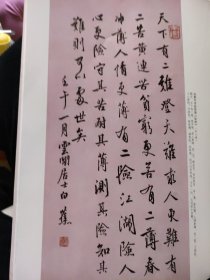 天下有二難登天難求人更難有
二苦黄連苦貧窮更苦有二薄春
冰薄人情更薄有二險江湖險人
心更險守其苦耐其薄測其險知其
難則可處世矣
壬午一月雲間居士白蕉